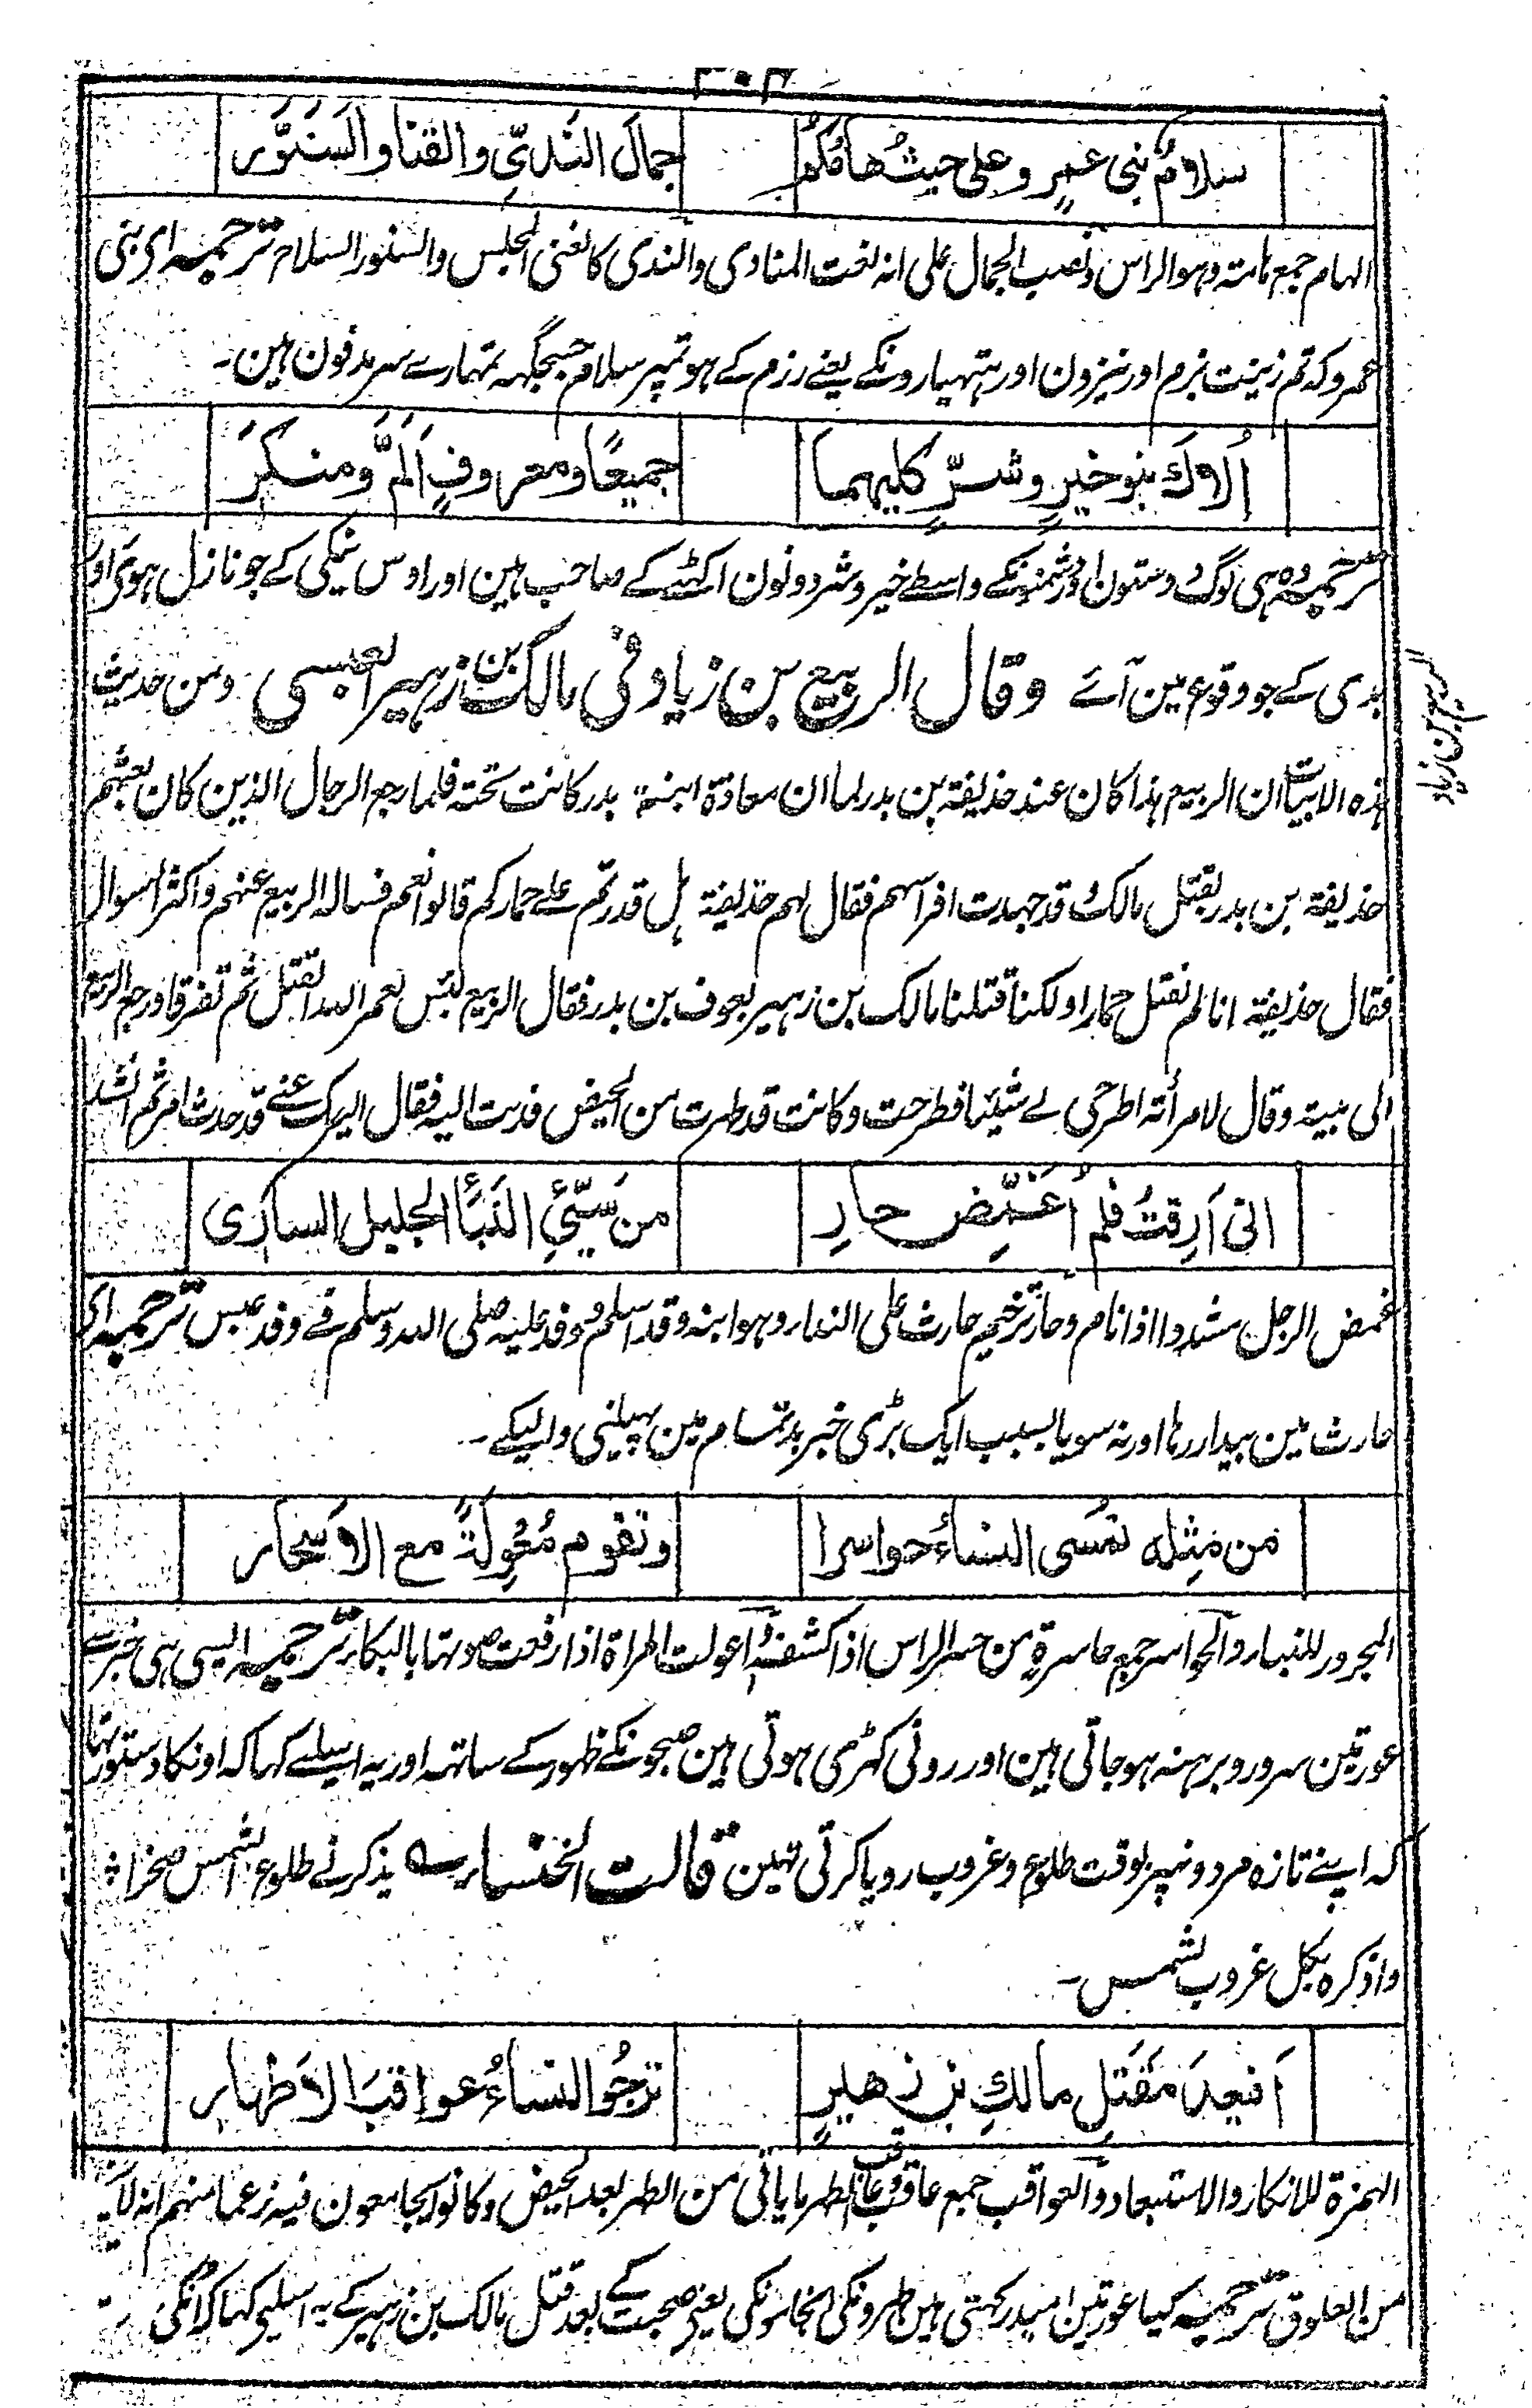 ۳۰۳
سلامٌ بنی عمرٍو علی حیثُ هامُكُمْ جمالَ النَّدِیّ والقنا والسَنَوَّر
الہام جمع ہامتہ وہوالراس ونصب الجمال علی انہ نعت المنادی والندی کالغنی المجلس والسنور السلاح ترجمہ ای بنی
عمرو کہ تم زینت بزم اور نیزون اور ہتہیارونکے یعنے رزم کے ہو تمپر سلام جسجگہہ تمہارے سر مدفون ہین۔
اُلاوكَ بنو خیرٍ وشرٍّ كلیهما جمیعًا ومعروفٍ اَلَمَّ ومنكرَ
ترجمہ وہ ہی لوگ دوستون اور دشمنونکے واسطے خیر وشر دونون اکٹہے کے صاحب ہین اور اوس نیکی کے جو نازل ہوئی اور
بدی کے جو وقوع مین آئے وقال الربیع بن زیاد فی مالک بن زہیر العبسی ومن حدیث
ہذہ الابیات ان الربیع ہذا کان عند حذیفتہ بن بدر لما ان معاذۃ ابنۃ بدر کانت تحتہ فلما رجع الرجال الذین کان بعثہم
حذیفۃ بن بدر بقتل مالک قد جہدت افراسہم فقال لہم حذیفۃ ہل قدرتم علے حمارکم قالوا نعم فسالہ الربیع عنہم واکثر السوال
فقال حذیفۃ انا لم نقتل حمارا ولکنا قتلنا مالک بن زہیر بعوف بن بدر فقال الربیع لبئس لعمر اللہ القتل ثم تفرقا ورجع الربیع
الی بیتہ وقال لامرأتہ اطرحی لے شیئا فطرحت وکانت قد طہرت من الحیض فدنت الیہ فقال الیک عنے قد حدث امر ثم انشد
ربیع بن زیاد
انی اَرِقتُ فلم اُغَمِّض حارِ من سَیِّئِ النَبَأ الجلیل الساری
غمض الرجل مشددا اذا نام وحار ترخیم حارث علی الندار وہو ابنہ وقد اسلم ووفد علیہ صلی اللہ وسلم فے وفد عبس ترجمہ ای
حارث مین بیدار رہا اور نہ سویا بسبب ایک بڑی خبر بد تمام مین پہیلنی والیکے۔
من مِثله تمسی النساءُ حواسرا وتقوم مُعْوِلَةً مع الاَسحار
المجرور للنبار والحواسر جمع حاسرۃٍ من حسر الراس اذا کشفہ واعولت المراۃ اذا رفعت صوتہا بالبکار ترجمہ ایسی ہی خبر سے
عورتین سرورو برہنہ ہو جاتی ہین اور روتی کہڑی ہوتی ہین صبحونکے ظہور کے ساتہہ اور یہ اسیلیے کہا کہ اونکا دستور تہا
کہ اپنے تازہ مردونپر بوقت طلوع وغروب رویا کرتی تہین قالت الخنسار یذکرنے طلوع الشمس صخرا
واذکرہ بکل غروب شمس۔
اَفبعدَ مَقتَلِ مالكِ بن زهیرٍ ترجُو النساءُ عواقبَ الاَطهار
الہمزۃ للانکار والاستبعاد والعواقب جمع عاقب وعاقبۃ الطہر ما یاتی من الطہر بعد الحیض وکانوا یجامعون فیہ زعما منہم انہ
من العلوق ترجمہ کیا عورتین امید رکہتی ہین طہرونکی انجامونکی یعنی صحبت کے بعد قتل مالک بن زہیر کے یہ اسلیے کہا کہ انکی